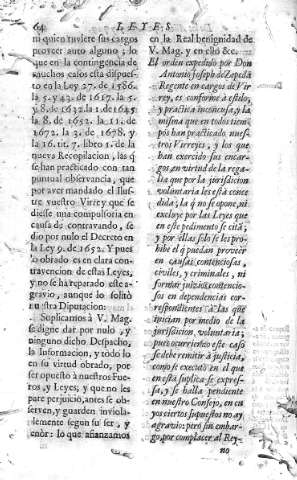 64 LEYES
ni quien tuviere sus cargos
proveer auto alguno; lo
que en la contingencia de
muchos casos está dispues-
to en la Ley 27. de 1586.
la 5. y 43. de 1617. la 5.
y 8. de 1632. la 1. de 1645.
la 8. de 1652. la 11. de
1672. la 3. de 1678, y
la 16. tit. 7. libro 1. de la
nueva Recopilacion, las q̃
se han practicado con tan
puntual observancia, que
por aver mandado el Ilus-
tre vuestro Virrey que se
diesse una compulsoria en
causa de contravando, se
dió por nulo el Decreto en
la Ley 9. de 1652. Y pues
lo obrado es en clara con-
travencion de estas Leyes,
y no se ha reparado este a-
gravio, aunque lo solitò
nuestra Diputacion:
Suplicamos à V. Mag.
se digne dar por nulo, y
ninguno dicho Despacho,
la Informacion, y todo lo
en su virtud obrado, por
ser opuesto à nuestros Fue-
ros, y Leyes; y que no les
pare perjuicio, antes se ob-
serven, y guarden inviola-
blemente segun su ser, y
tenor: lo que afianzamos
en la Real benignidad de
V. Mag. y en ello &c.
El orden expedido por Don
Antonio Joseph de Zepeda
Regente en cargos de Vir-
rey, es conforme à estilo,
y practica inconcusa, y la
misma que en todos tiem-
pos han practicado nues-
tros Virreyes, y los que
han exercido sus encar-
gos, en virtud de la rega-
lia que por la jurisdicion
voluntaria les està conce-
dida; la q̃ no se opone, ni
excluye por las Leyes que
en este pedimento se cita;
y por ellas solo se les prohi-
be el q̃ puedan proveer
en causas contenciosas,
civiles, y criminales, ni
formar juizios contencio-
sos en dependencias cor-
respondientes à las que
por medio de la
jurisdicion, voluntaria;
pues ocurriendo este caso
se debe remitir à justicia,
como se executò en el que
en esta suplica se expres-
sa, y se halla pendiente
en nuestro Consejo, en cu-
yos ciertos supuestos no ay
agravio: però sin embar-
go, por complacer al Rey-
no